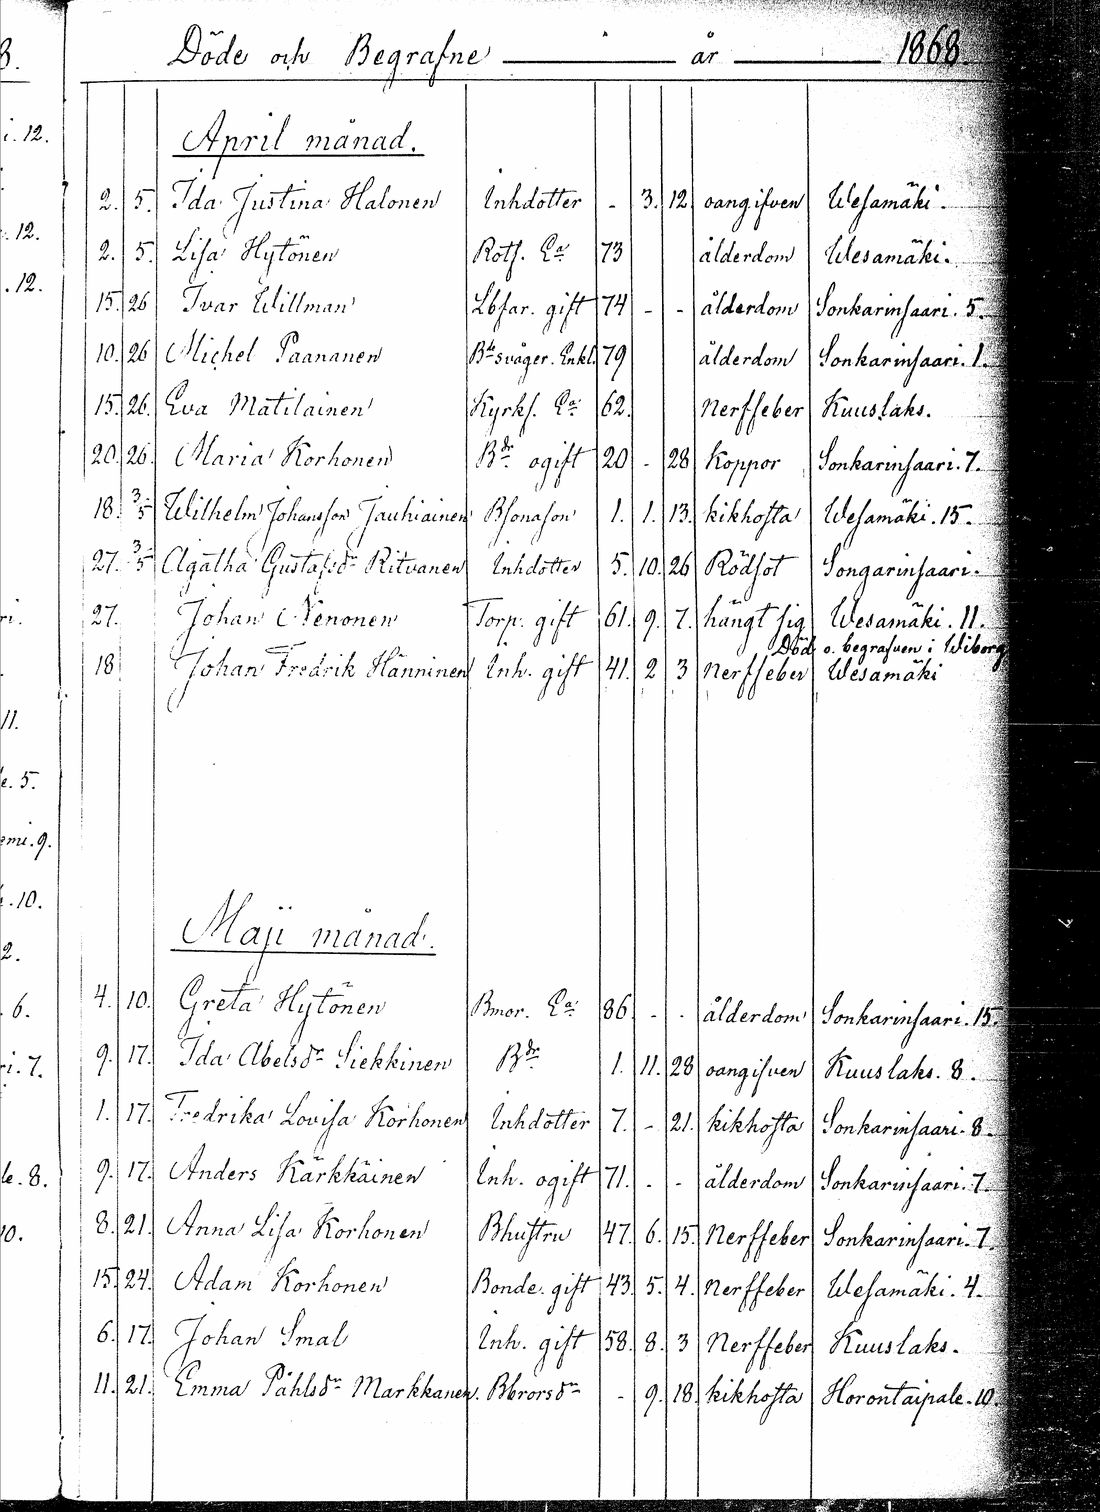 8.
Döde och Begrafne år 1868.
i. 12.
. 12.
. 12.
ri.
11.
e. 5.
emi. 9.
. 10.
2.
. 6.
ri. 7.
le. 8.
10.
April månad.
2. 5. Ida Justina Halonen Inhdotter - 3. 12 oangifven Wesamäki.
2. 5. Lisa Hytönen Rotf. Ea 73 ålderdom Wesamäki.
15. 26 Ivar Willman Lbfar. gift 74 - - ålderdom Sonkarinsaari. 5.
10. 26 Michel Paananen Bdesvåger. Enkl. 79 ålderdom Sonkarinsaari. 1.
15. 26. Eva Matilainen Kyrkf. Ea 62. Nerffeber Kuuslaks.
20. 26. Maria Korhonen Bdr. ogift 20 - 28 Koppor Sonkarinsaari. 7.
18. 3/5 Wilhelm Johansson Jauhiainen Bsonason 1. 1. 13. kikhosta Wesamäki. 15.
27. 3/5 Agatha Gustafsdr Ritvanen Inhdotter 5. 10. 26 Rödsot Songarinsaari.
27. Johan Nenonen Torp. gift 61. 9. 7. hängt sig Wesamäki. 11.
Död o. begrafven i Wiborg
18 Johan Fredrik Hänninen Inh. gift 41. 2 3 Nerffeber Wesamäki
Maji månad.
4. 10. Greta Hytönen Bmor. Ea 86 - - ålderdom Sonkarinsaari. 15.
9. 17. Ida Abelsdr Siekkinen Bdr 1. 11. 28 oangifven Kuuslaks. 8.
1. 17. Fredrika Lovisa Korhonen Inhdotter 7. - 21. kikhosta Sonkarinsaari. 8.
9. 17. Anders Kärkkäinen Inh. ogift 71. - - ålderdom Sonkarinsaari. 7.
8. 21. Anna Lisa Korhonen Bhustru 47. 6. 15. Nerffeber Sonkarinsaari. 7.
15. 24. Adam Korhonen Bonde. gift 43. 5. 4. Nerffeber Wesamäki. 4.
6. 17. Johan Smal Inh. gift 58. 8. 3 Nerffeber Kuuslaks.
11. 21. Emma Påhlsdr Markkanen. Bbrorsdr - 9. 18. kikhosta Horontaipale. 10.